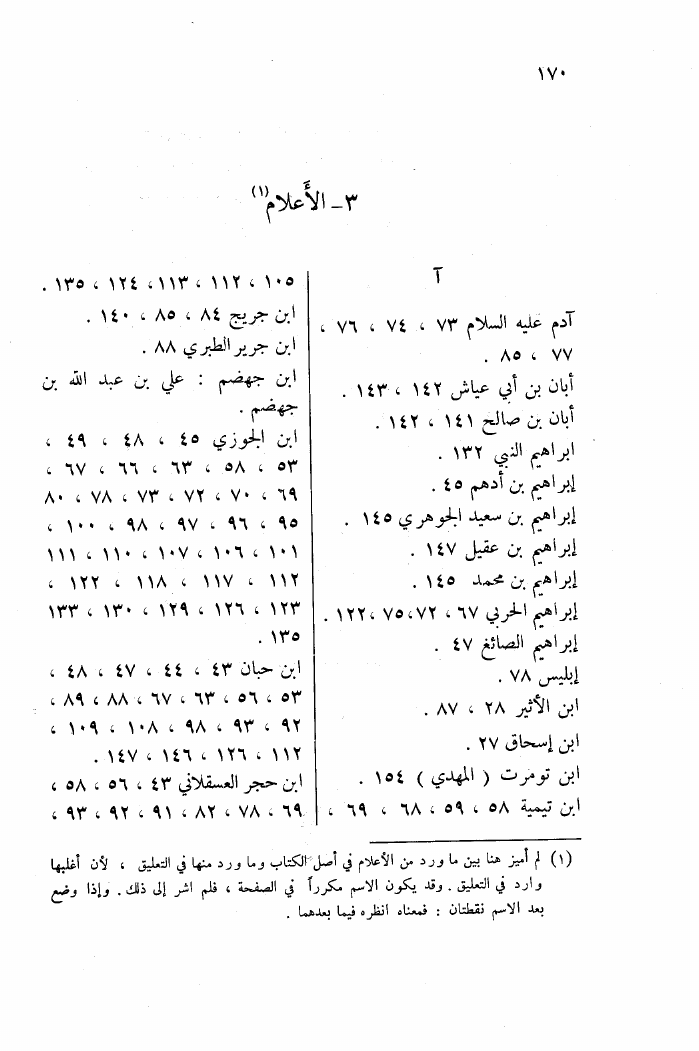 ١٧٠
٣ ـ الأَعلام (١)
آ
آدم عليه السلام ٧٣ ، ٧٤ ، ٧٦ ،
٧٧ ، ٨٥ .
أبان بن أبي عياش ١٤٢ ، ١٤٣ .
أبان بن صالح ١٤١ ، ١٤٢ .
ابراهيم النبي ١٣٢ .
إبراهيم بن أدهم ٤٥ .
إبراهيم بن سعيد الجوهري ١٤٥ .
إبراهيم بن عقيل ١٤٧ .
إبراهيم بن محمد ١٤٥ .
إبراهيم الحربي ٦٧ ، ٧٢ ،٧٥ ،١٢٢ .
إبراهيم الصائغ ٤٧ .
إبليس ٧٨ .
ابن الأثير ٢٨ ، ٨٧ .
ابن إسحاق ٢٧ .
ابن تومرت ( المهدي ) ١٥٤ .
ابن تيمية ٥٨ ، ٥٩ ، ٦٨ ، ٦٩ ،
١٠٥ ، ١١٢ ، ١١٣، ١٢٤ ، ١٣٥ .
ابن جريج ٨٤ ، ٨٥ ، ١٤٠ .
ابن جرير الطبري ٨٨ .
ابن جهضم : علي بن عبد الله بن
جهضم .
ابن الجوزي ٤٥ ، ٤٨ ، ٤٩ ،
٥٣ ، ٥٨ ، ٦٣ ، ٦٦ ، ٦٧ ،
٦٩ ، ٧٠ ، ٧٢ ، ٧٣ ، ٧٨ ، ٨٠
٩٥ ، ٩٦ ، ٩٧ ، ٩٨ ، ١٠٠ ،
١٠١ ، ١٠٦ ، ١٠٧ ، ١١٠ ، ١١١
١١٢ ، ١١٧ ، ١١٨ ، ١٢٢ ،
١٢٣ ، ١٢٦ ، ١٢٩ ، ١٣٠ ، ١٣٣
١٣٥ .
ابن حبان ٤٣ ، ٤٤ ، ٤٧ ، ٤٨ ،
٥٣ ، ٥٦ ، ٦٣ ، ٦٧ ، ٨٨ ، ٨٩ ،
٩٢ ، ٩٣ ، ٩٨ ، ١٠٨ ، ١٠٩ ،
١١٢ ، ١٢٦ ، ١٤٦ ، ١٤٧ .
ابن حجر العسقلاني ٤٣ ، ٥٦ ، ٥٨ ،
٦٩ ، ٧٨ ، ٨٢ ، ٩١ ، ٩٢ ، ٩٣ ،
(١) لم أميز هنا بين ما ورد من الأعلام في أصل الكتاب وما ورد منها في التعليق ، لأن أغلبها
وارد في التعليق . وقد يكون الاسم مكرراً في الصفحة ، فلم اشر إلى ذلك . وإذا وضع
بعد الاسم نقطتان : فمعناه انظره فيما بعدهما .